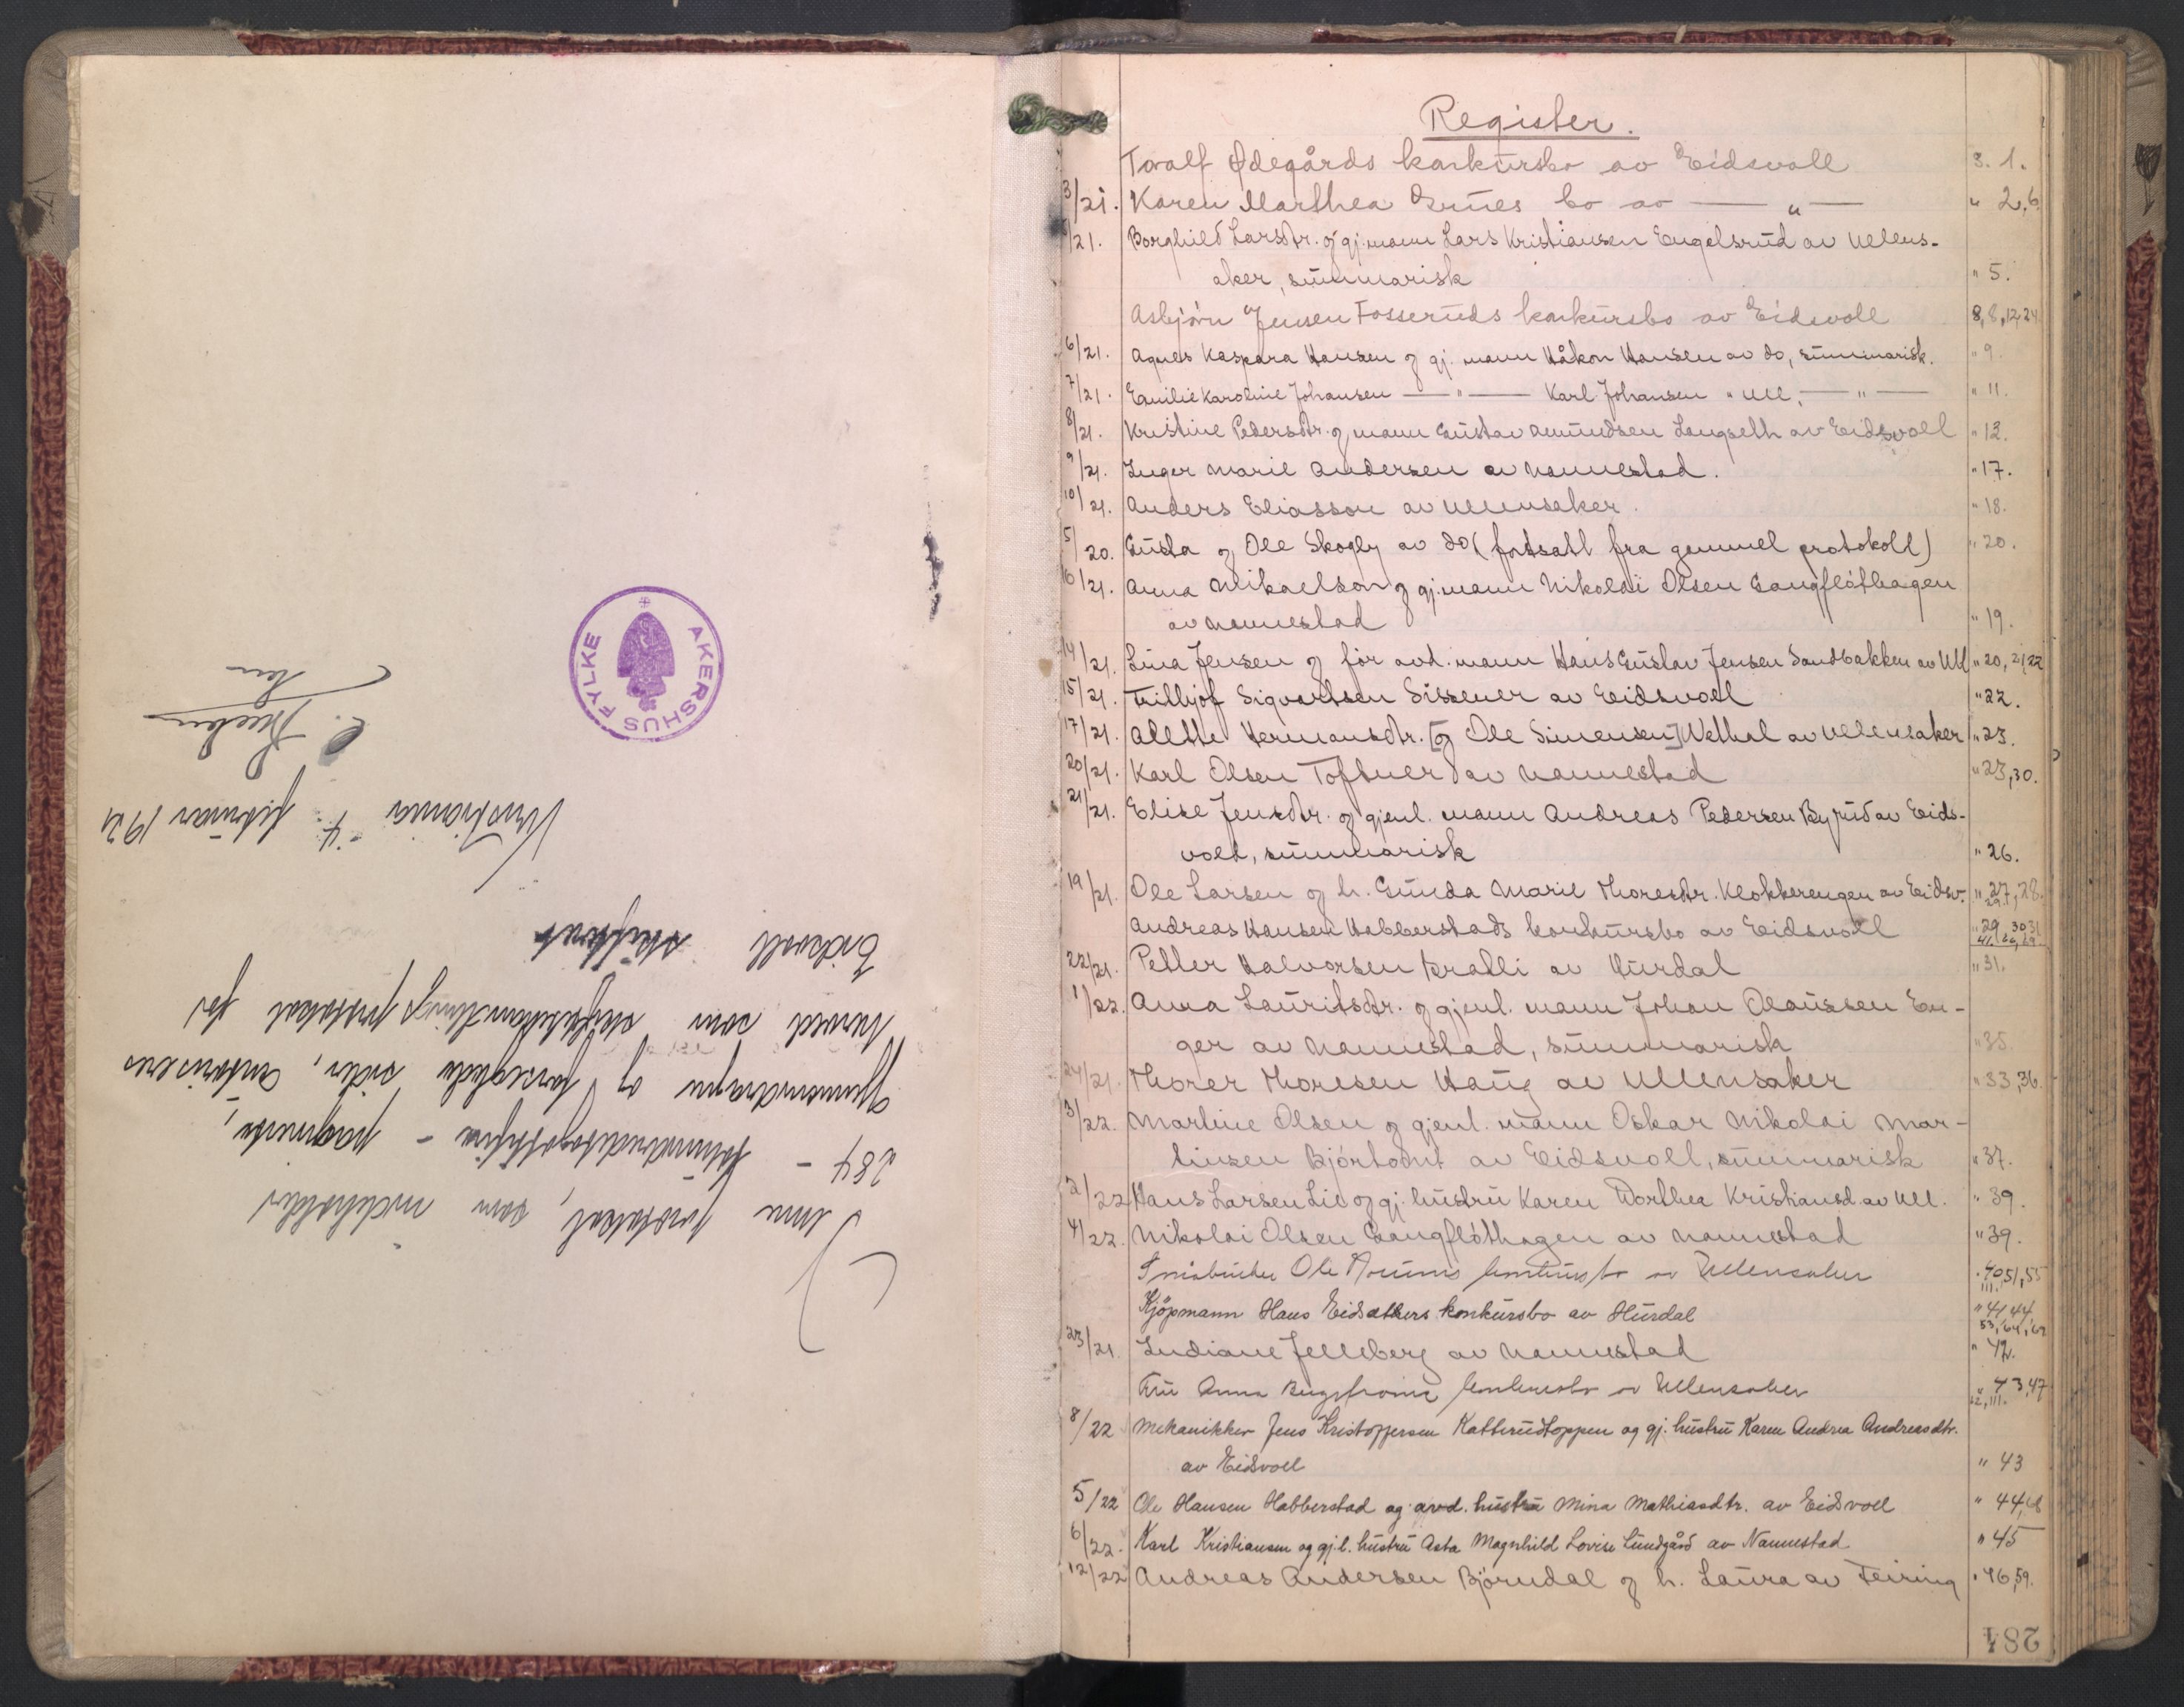 Denne protokol, som indeholder
284 - tohundredeogottifire - paginerte,
gjennemdragne og forseglede sider, autoriseres
herved som skiftebehandlingsprotokol for
Eidsvoll skifteret
Kristiania 4. februar 1921
AKERSHUS FYLKE
Register.
Toralf Ødegårds konkursbo av Eidsvoll s. 1.
3/21. Karen Marthea bo av — " — " 2,6.
/21. Borghild Larsdtr. og gj. mann Lars Kristiansen Engelsrud av Ullens-
aker, summarisk " 5.
Asbjørn Jensen Fosseruds konkursbo av Eidsvoll 8,8,12,24
6/21. Agnes Kaspara Hansen og gj. mann Håkon Hansen av do, summarisk. " 9.
7/21. Emilie Karoline Johansen — " — Karl Johansen " Ull, — " — " 11.
8/21. Kristine Pedersdtr. og mann Gustav Amundsen Langseth av Eidsvoll " 13.
9/21. Inger Marie Andersen av Nannestad. " 17.
10/21. Anders Eliasson av Ullensaker. " 18.
5/20. Gusta og Ole Skogly av do (fortsatt fra gammel protokoll) " 20.
16/21. Anna Mikaelson og gj. mann Nikolai Olsen Gangfløthagen
av Nannestad " 19.
14/21. Lina Jensen og før avd. mann Hans Gustav Jensen Sandbakken av Ull " 20, 21, 22
15/21. Frithjof Sigvartsen Sissener av Eidsvoll " 22.
17/21. Alette Hermansdtr. [og Ole Simensen] Wethal av Ullensaker " 23.
20/21. Karl Olsen Toftner av Nannestad " 23,30.
21/21. Elise Jensdtr. og gjenl. mann Andreas Pedersen Byrud av Eids-
voll, summarisk " 26.
19/21. Ole Larsen og h. Gunda Marie Thoresdtr. Klokkerengen av Eidsv. " 27, 28. 29.
Andreas Hansen Habberstads konkursbo av Eidsvoll " 29, 30, 31
22/21. Petter Halvorsen Bratli av Hurdal " 31.
1/22. Anna Lauritsdtr. og gjenl. mann Johan Olaussen En-
ger av Nannestad, summarisk " 35.
24/21. Thorer Thoresen Haug av Ullensaker " 33,36.
3/22. Martine Olsen og gjenl. mann Oskar Nikolai Mar-
tinsen Bjørtomt av Eidsvoll, summarisk " 37.
2/22 Hans Larsen Lie og gj. hustru Karen Dorthea Kristiansd. av Ull. " 39.
4/22. Nikolai Olsen Gangfløthagen av Nannestad " 39.
Ole konkursbo av Ullensaker " 40,51,55 111.
Kjøpmann Hans Eidsæthers konkursbo av Hurdal " 41,44 53, 64, 69
23/21. Indiane Jelleberg av Nannestad " 42.
Fru Anna konkursbo av Ullensaker " 43,47
8/22 Mekanikker Jens Kristoffersen Katterudtoppen og gj. hustru Karen Andrea Andreasdtr.
av Eidsvoll " 43
5/22 Ole Hansen Habberstad og avd. hustru Mina Mathiasdtr. av Eidsvoll " 44,
6/22. Karl Kristiansen og gj.l. hustru Asta Magnhild Lovise Lundgård av Nannestad " 45
12/22 Andreas Andersen Bjørndal og h. Laura av Feiring " 46,59.
284